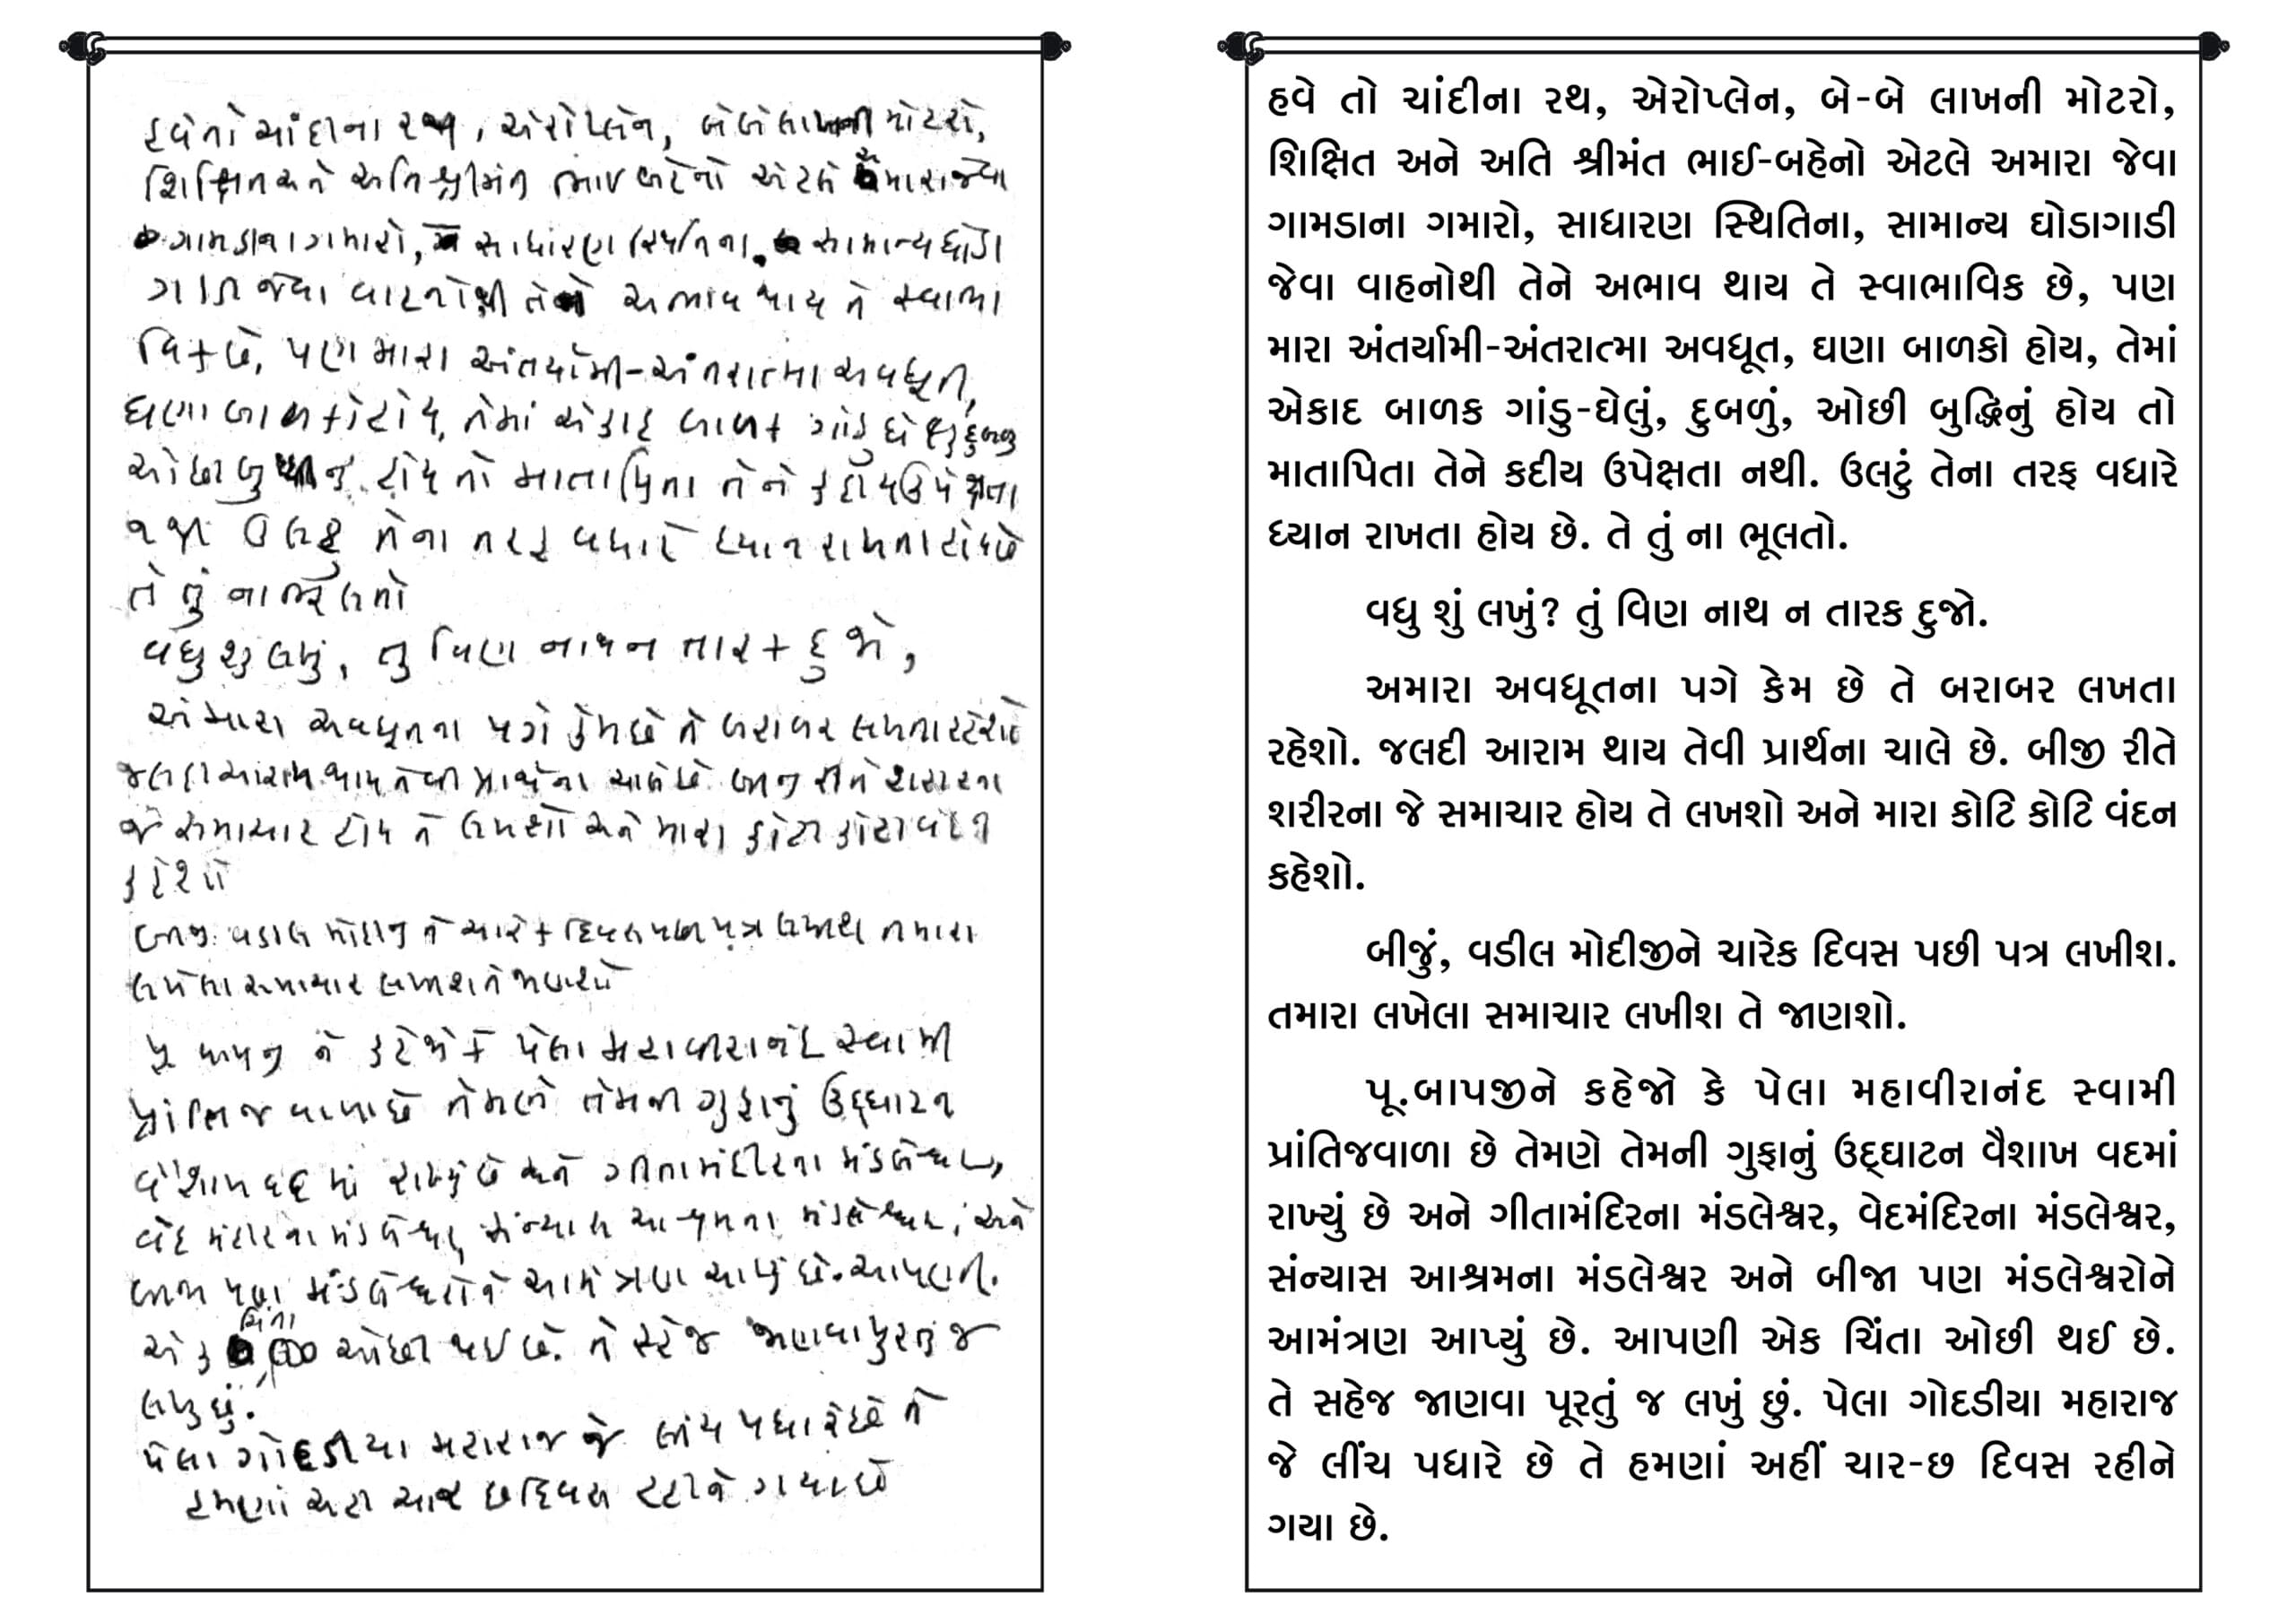 હવેતો ચાંદીના રથ, એરોપ્લેન, બેબે લાખની મોટરો,
શિક્ષિત અને અતિ શ્રીમંત ભાઈ બહેનો એટલે અમારા જેવા
ગામડાના ગમારો, સાધારણ સ્થિતિના, સામાન્ય ઘોડા
ગાડી જેવા વાહનોથી તેને અભાવ થાય તે સ્વાભા
વિક છે, પણ મારા અંતર્યામી-અંતરાત્મા અવધૂત,
ઘણા બાળકો હોય, તેમાં એકાદ બાળક ગાંડુ ઘેલુ દુબળુ
ઓછી બુદ્ધિનું હોય તો માતાપિતા તેને કદીય ઉપેક્ષતા
નથી ઉલટુ તેના તરફ વધારે ધ્યાન રાખતા હોય છે
તે તું ના ભૂલતો
વધુ શુ લખું, તુ વિણ નાથ ન તારક દુજો,
અમારા અવધૂતના પગે કેમ છે તે બરાબર લખતા રહેશો
જલદી આરામ થાય તેવી પ્રાર્થના ચાલે છે બીજી રીતે શરીરના
જે સમાચાર હોય તે લખશો અને મારા કોટી કોટી વંદન
કહેશો
બીજુ વડીલ મોદીજી ને ચારેક દિવસ પછી પત્ર લખીશ તમારા
લખેલા સમાચાર લખીશ તે જાણશો
પૂ બાપજી ને કહેજો કે પેલા મહાવીરાનંદ સ્વામી
પ્રાંતિજ વાળા છે તેમણે તેમની ગુફાનું ઉદ્ઘાટન
વૈશાખ વદ માં રાખ્યું છે અને ગીતામંદીરના મંડલેશ્વર,
વેદ મંદીરના મંડલેશ્વર, સંન્યાસ આશ્રમના મંડલેશ્વર, અને
બીજા પણ મંડલેશ્વરોને આમંત્રણ આપ્યું છે. આપણી.
એક ચિંતા ઓછી થઈ છે. તે સહેજ જાણવા પુરતું જ
લખુ છું.
પેલા ગોદડીયા મહારાજ જે લીંચ પધારે છે તે
હમણાં અહીં ચાર છ દિવસ રહીને ગયા છે
હવે તો ચાંદીના રથ, એરોપ્લેન, બે-બે લાખની મોટરો,
શિક્ષિત અને અતિ શ્રીમંત ભાઈ-બહેનો એટલે અમારા જેવા
ગામડાના ગમારો, સાધારણ સ્થિતિના, સામાન્ય ઘોડાગાડી
જેવા વાહનોથી તેને અભાવ થાય તે સ્વાભાવિક છે, પણ
મારા અંતર્યામી-અંતરાત્મા અવધૂત, ઘણા બાળકો હોય, તેમાં
એકાદ બાળક ગાંડુ-ઘેલું, દુબળું, ઓછી બુદ્ધિનું હોય તો
માતાપિતા તેને કદીય ઉપેક્ષતા નથી. ઉલટું તેના તરફ વધારે
ધ્યાન રાખતા હોય છે. તે તું ના ભૂલતો.
વધુ શું લખું? તું વિણ નાથ ન તારક દુજો.
અમારા અવધૂતના પગે કેમ છે તે બરાબર લખતા
રહેશો. જલદી આરામ થાય તેવી પ્રાર્થના ચાલે છે. બીજી રીતે
શરીરના જે સમાચાર હોય તે લખશો અને મારા કોટિ કોટિ વંદન
કહેશો.
બીજું, વડીલ મોદીજીને ચારેક દિવસ પછી પત્ર લખીશ.
તમારા લખેલા સમાચાર લખીશ તે જાણશો.
પૂ.બાપજીને કહેજો કે પેલા મહાવીરાનંદ સ્વામી
પ્રાંતિજવાળા છે તેમણે તેમની ગુફાનું ઉદ્ઘાટન વૈશાખ વદમાં
રાખ્યું છે અને ગીતામંદિરના મંડલેશ્વર, વેદમંદિરના મંડલેશ્વર,
સંન્યાસ આશ્રમના મંડલેશ્વર અને બીજા પણ મંડલેશ્વરોને
આમંત્રણ આપ્યું છે. આપણી એક ચિંતા ઓછી થઈ છે.
તે સહેજ જાણવા પૂરતું જ લખું છું. પેલા ગોદડીયા મહારાજ
જે લીંચ પધારે છે તે હમણાં અહીં ચાર-છ દિવસ રહીને
ગયા છે.